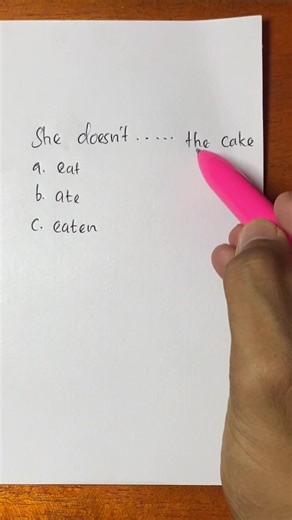 She doesn't ..... the cake
a. eat
b. ate
c. eaten